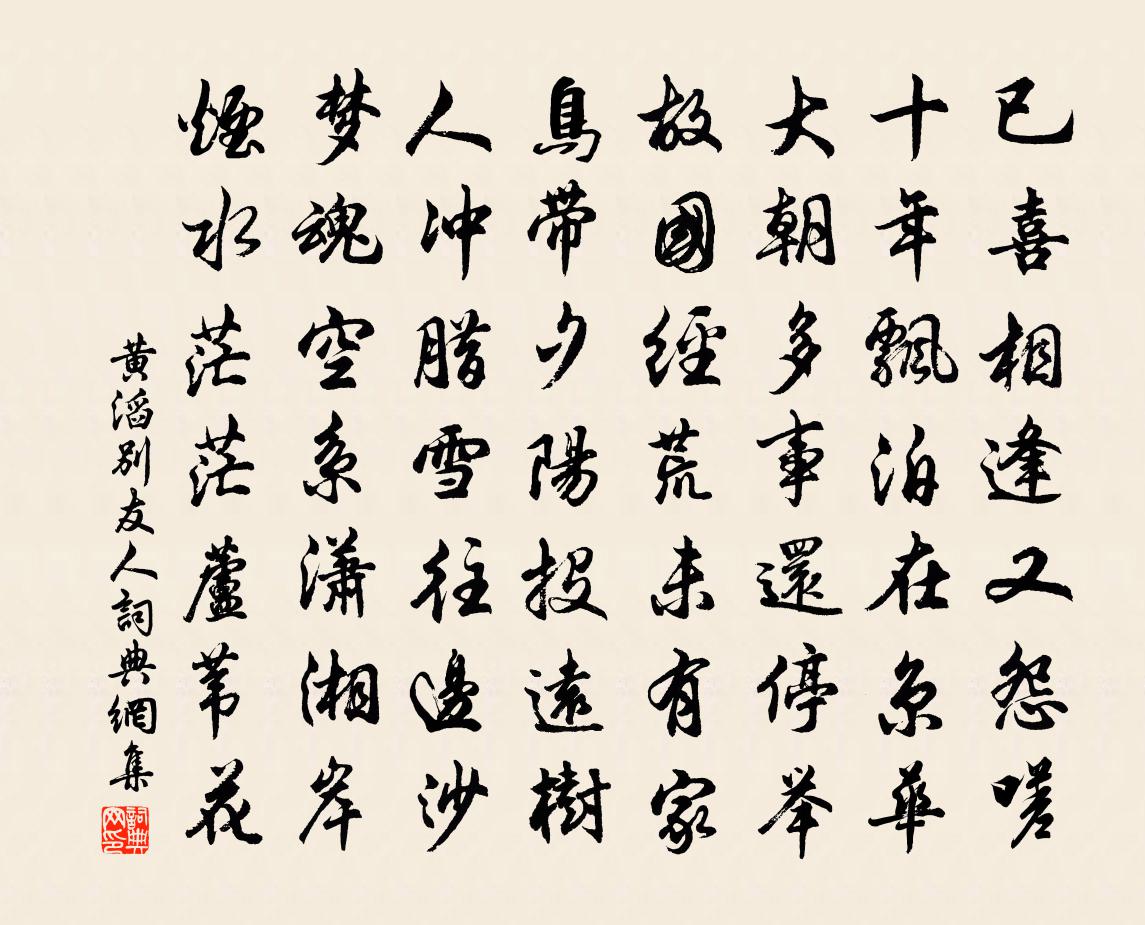 已喜相逢又怨嗟
十年飄泊在京華
大朝多事還停舉
故國經荒未有家
鳥帶夕陽投遠樹
人冲腊雪往邊沙
梦魂空系瀟湘岸
煙水茫茫蘆葦花
黄滔别友人詞典網集
詞典网印